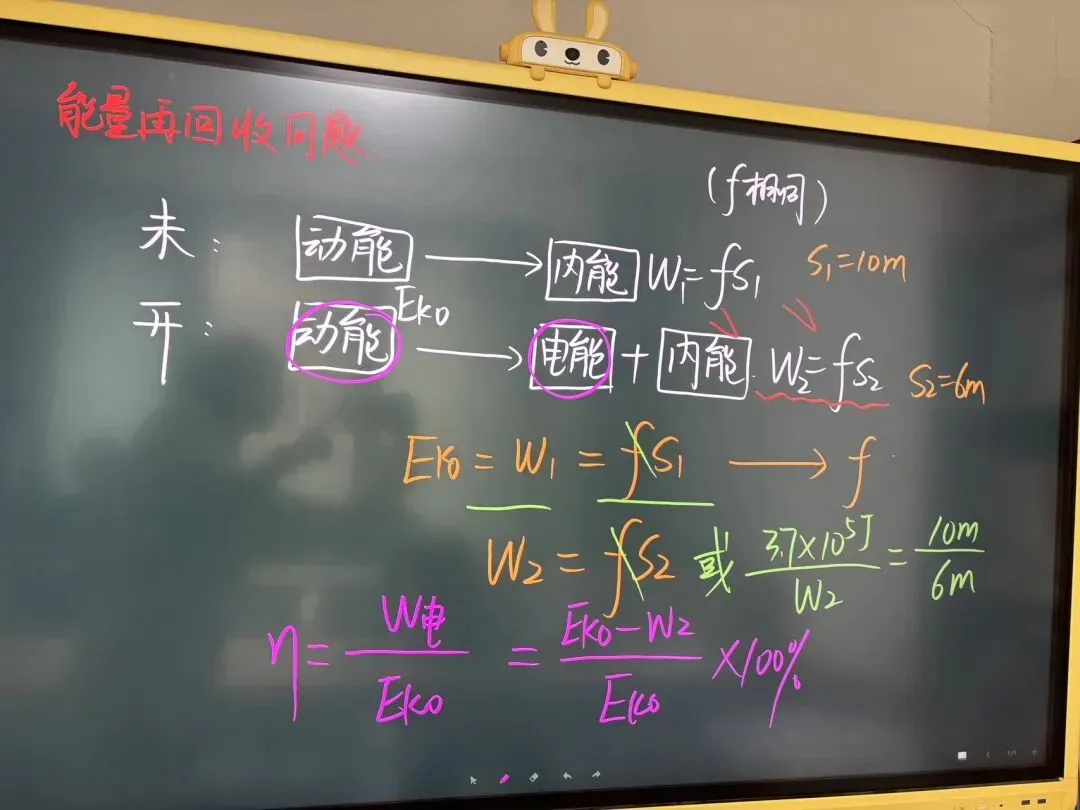 能量再回收问题
(f相同)
未: 动能 → 内能 W₁=fS₁ S₁=10m
开: 动能 Eₖ₀ → 电能 + 内能 W₂=fS₂ S₂=6m
Eₖ₀ = W₁ = fS₁ → f
W₂ = fS₂ 或 3.7×10⁵J/W₂ = 10m/6m
η = W电/Eₖ₀ = (Eₖ₀-W₂)/Eₖ₀ ×100%